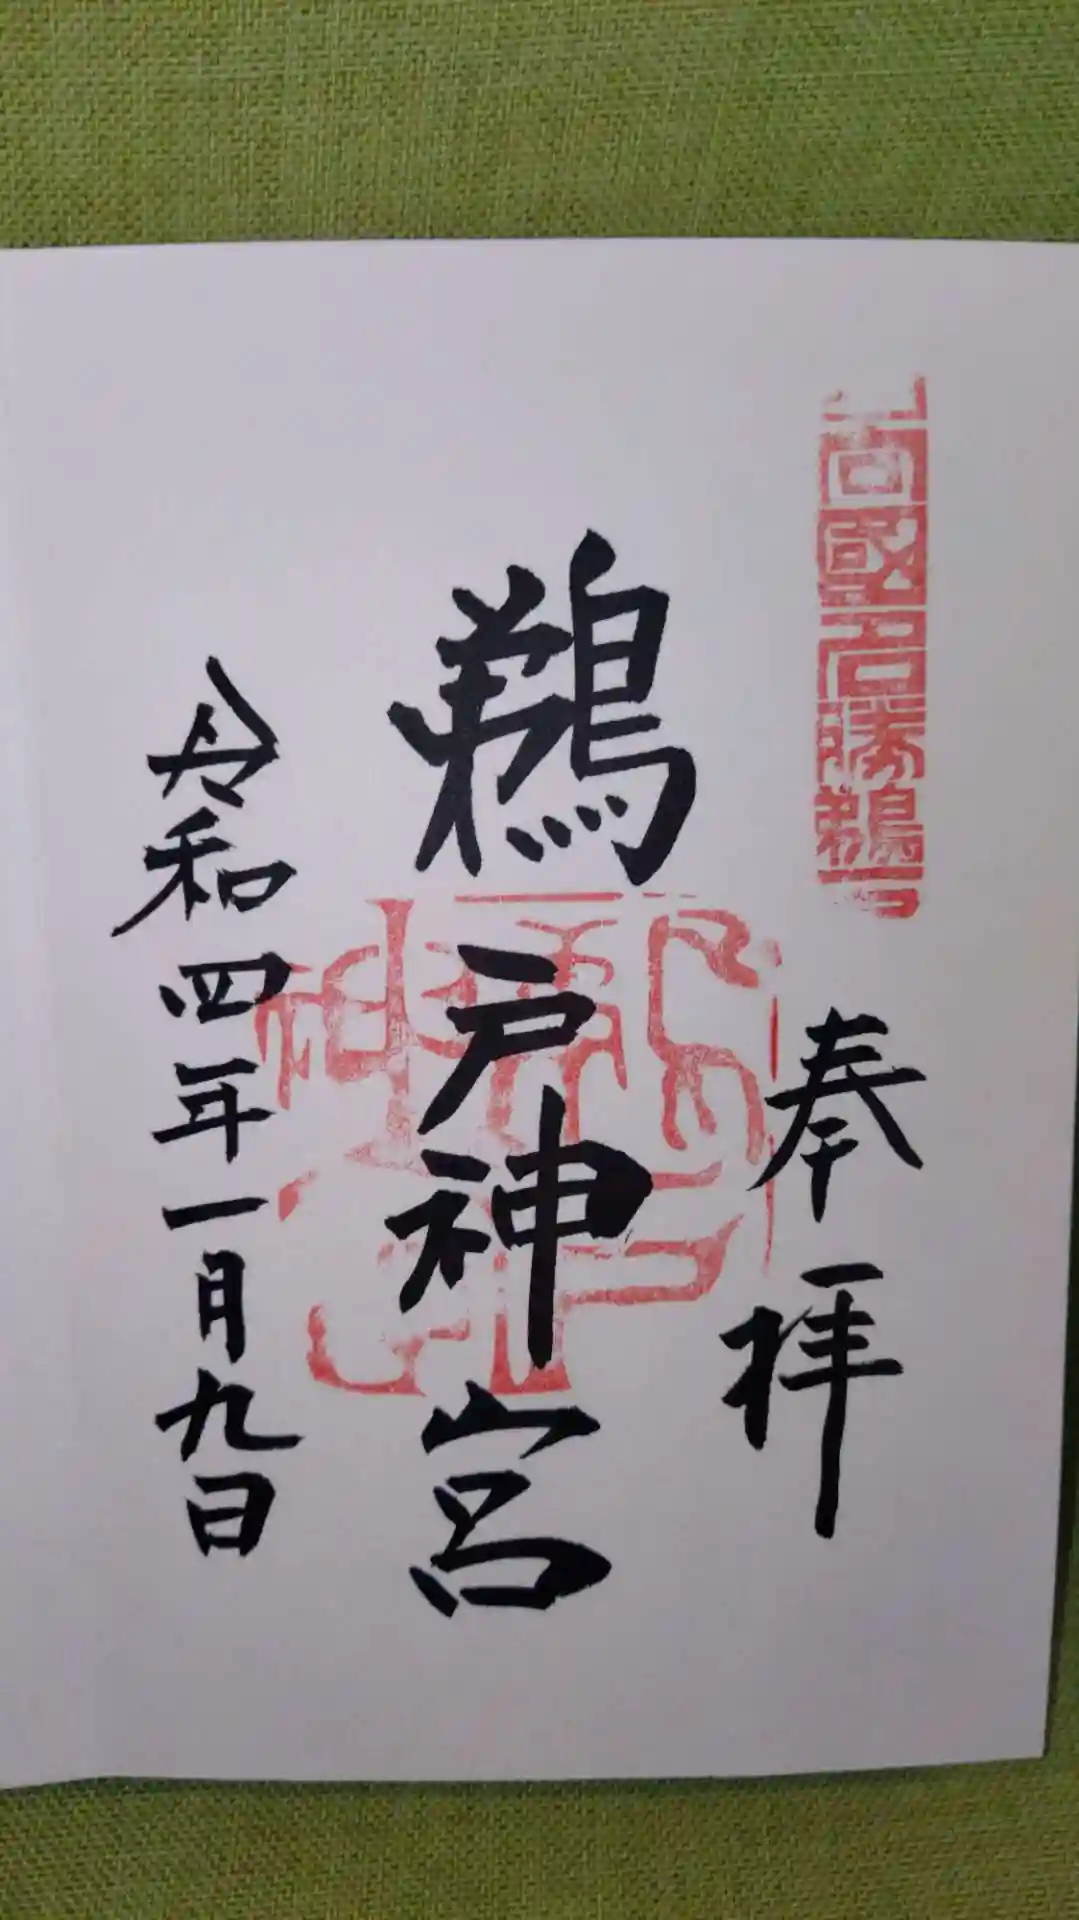 向國名勝鵜戸
奉拝
鵜戸神宮
令和四年一月九日